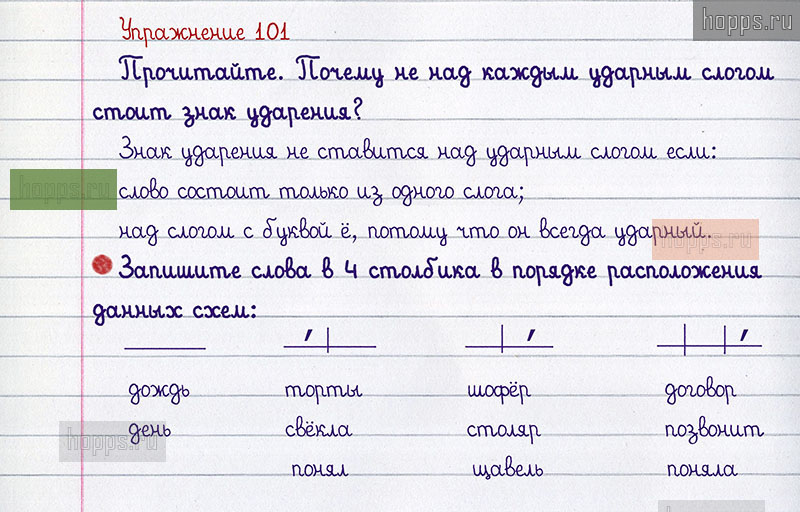 hopps.ru
Упражнение 101
Прочитайте. Почему не над каждым ударным слогом
стоит знак ударения?
Знак ударения не ставится над ударным слогом если:
hopps.ru
слово состоит только из одного слога;
над слогом с буквой ё, потому что он всегда ударный.
hopps.ru
Запишите слова в 4 столбика в порядке расположения
данных схем:
дождь торты шофёр договор
день свёкла столяр позвонит
hopps.ru
понял щавель поняла